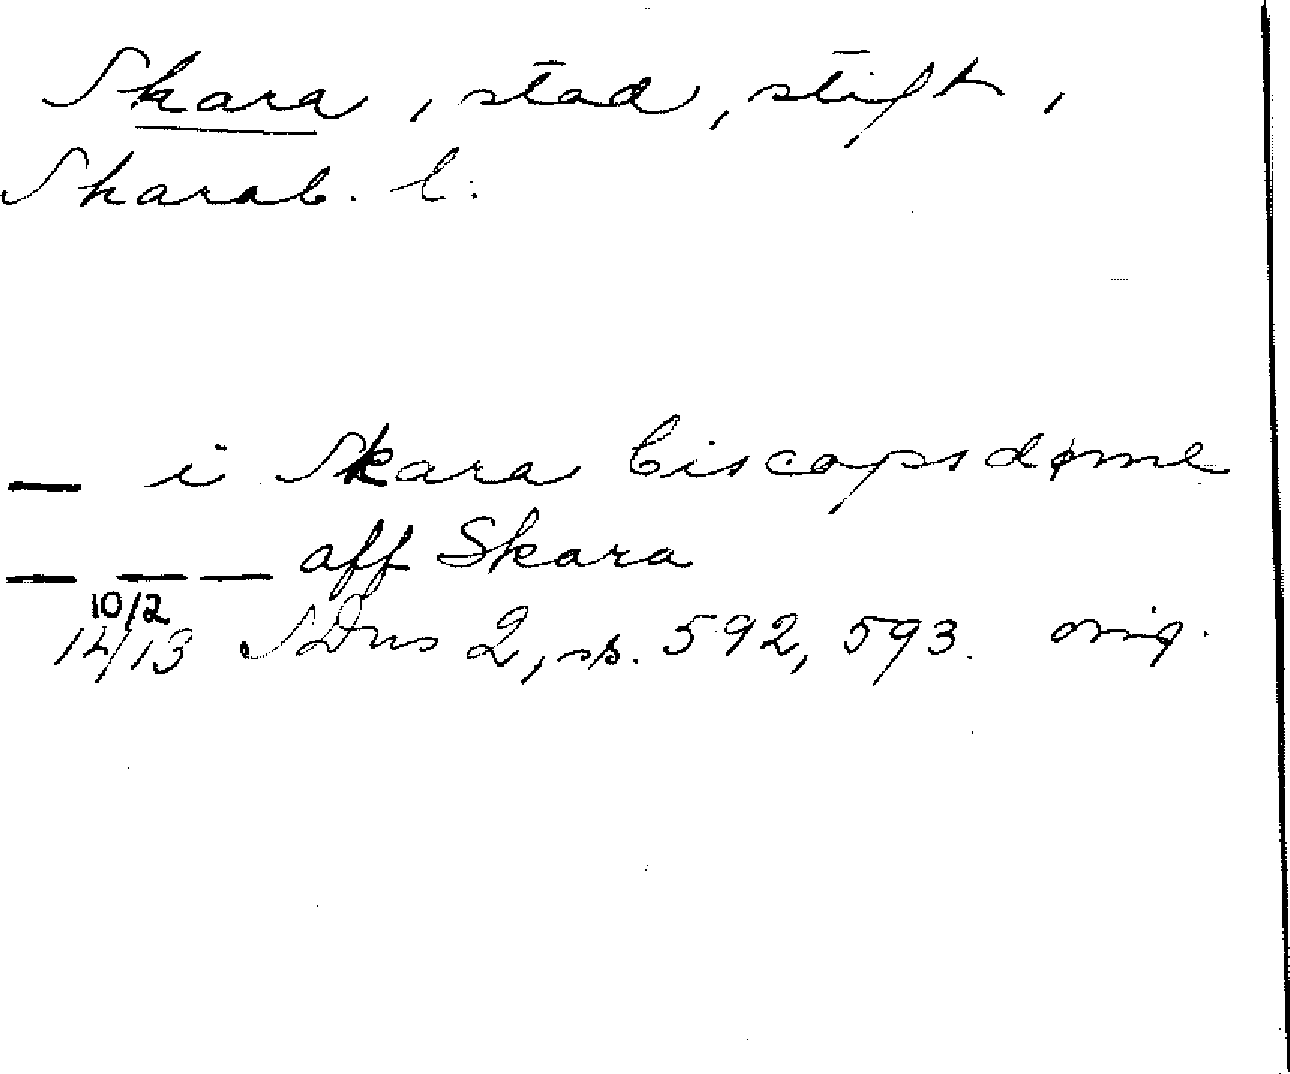 Skara, stad, stift,
Skarab. l.
— i Skara biscopsdøme
— — — aff Skara
10/2
1413 SDns 2, ss. 592, 593. orig.